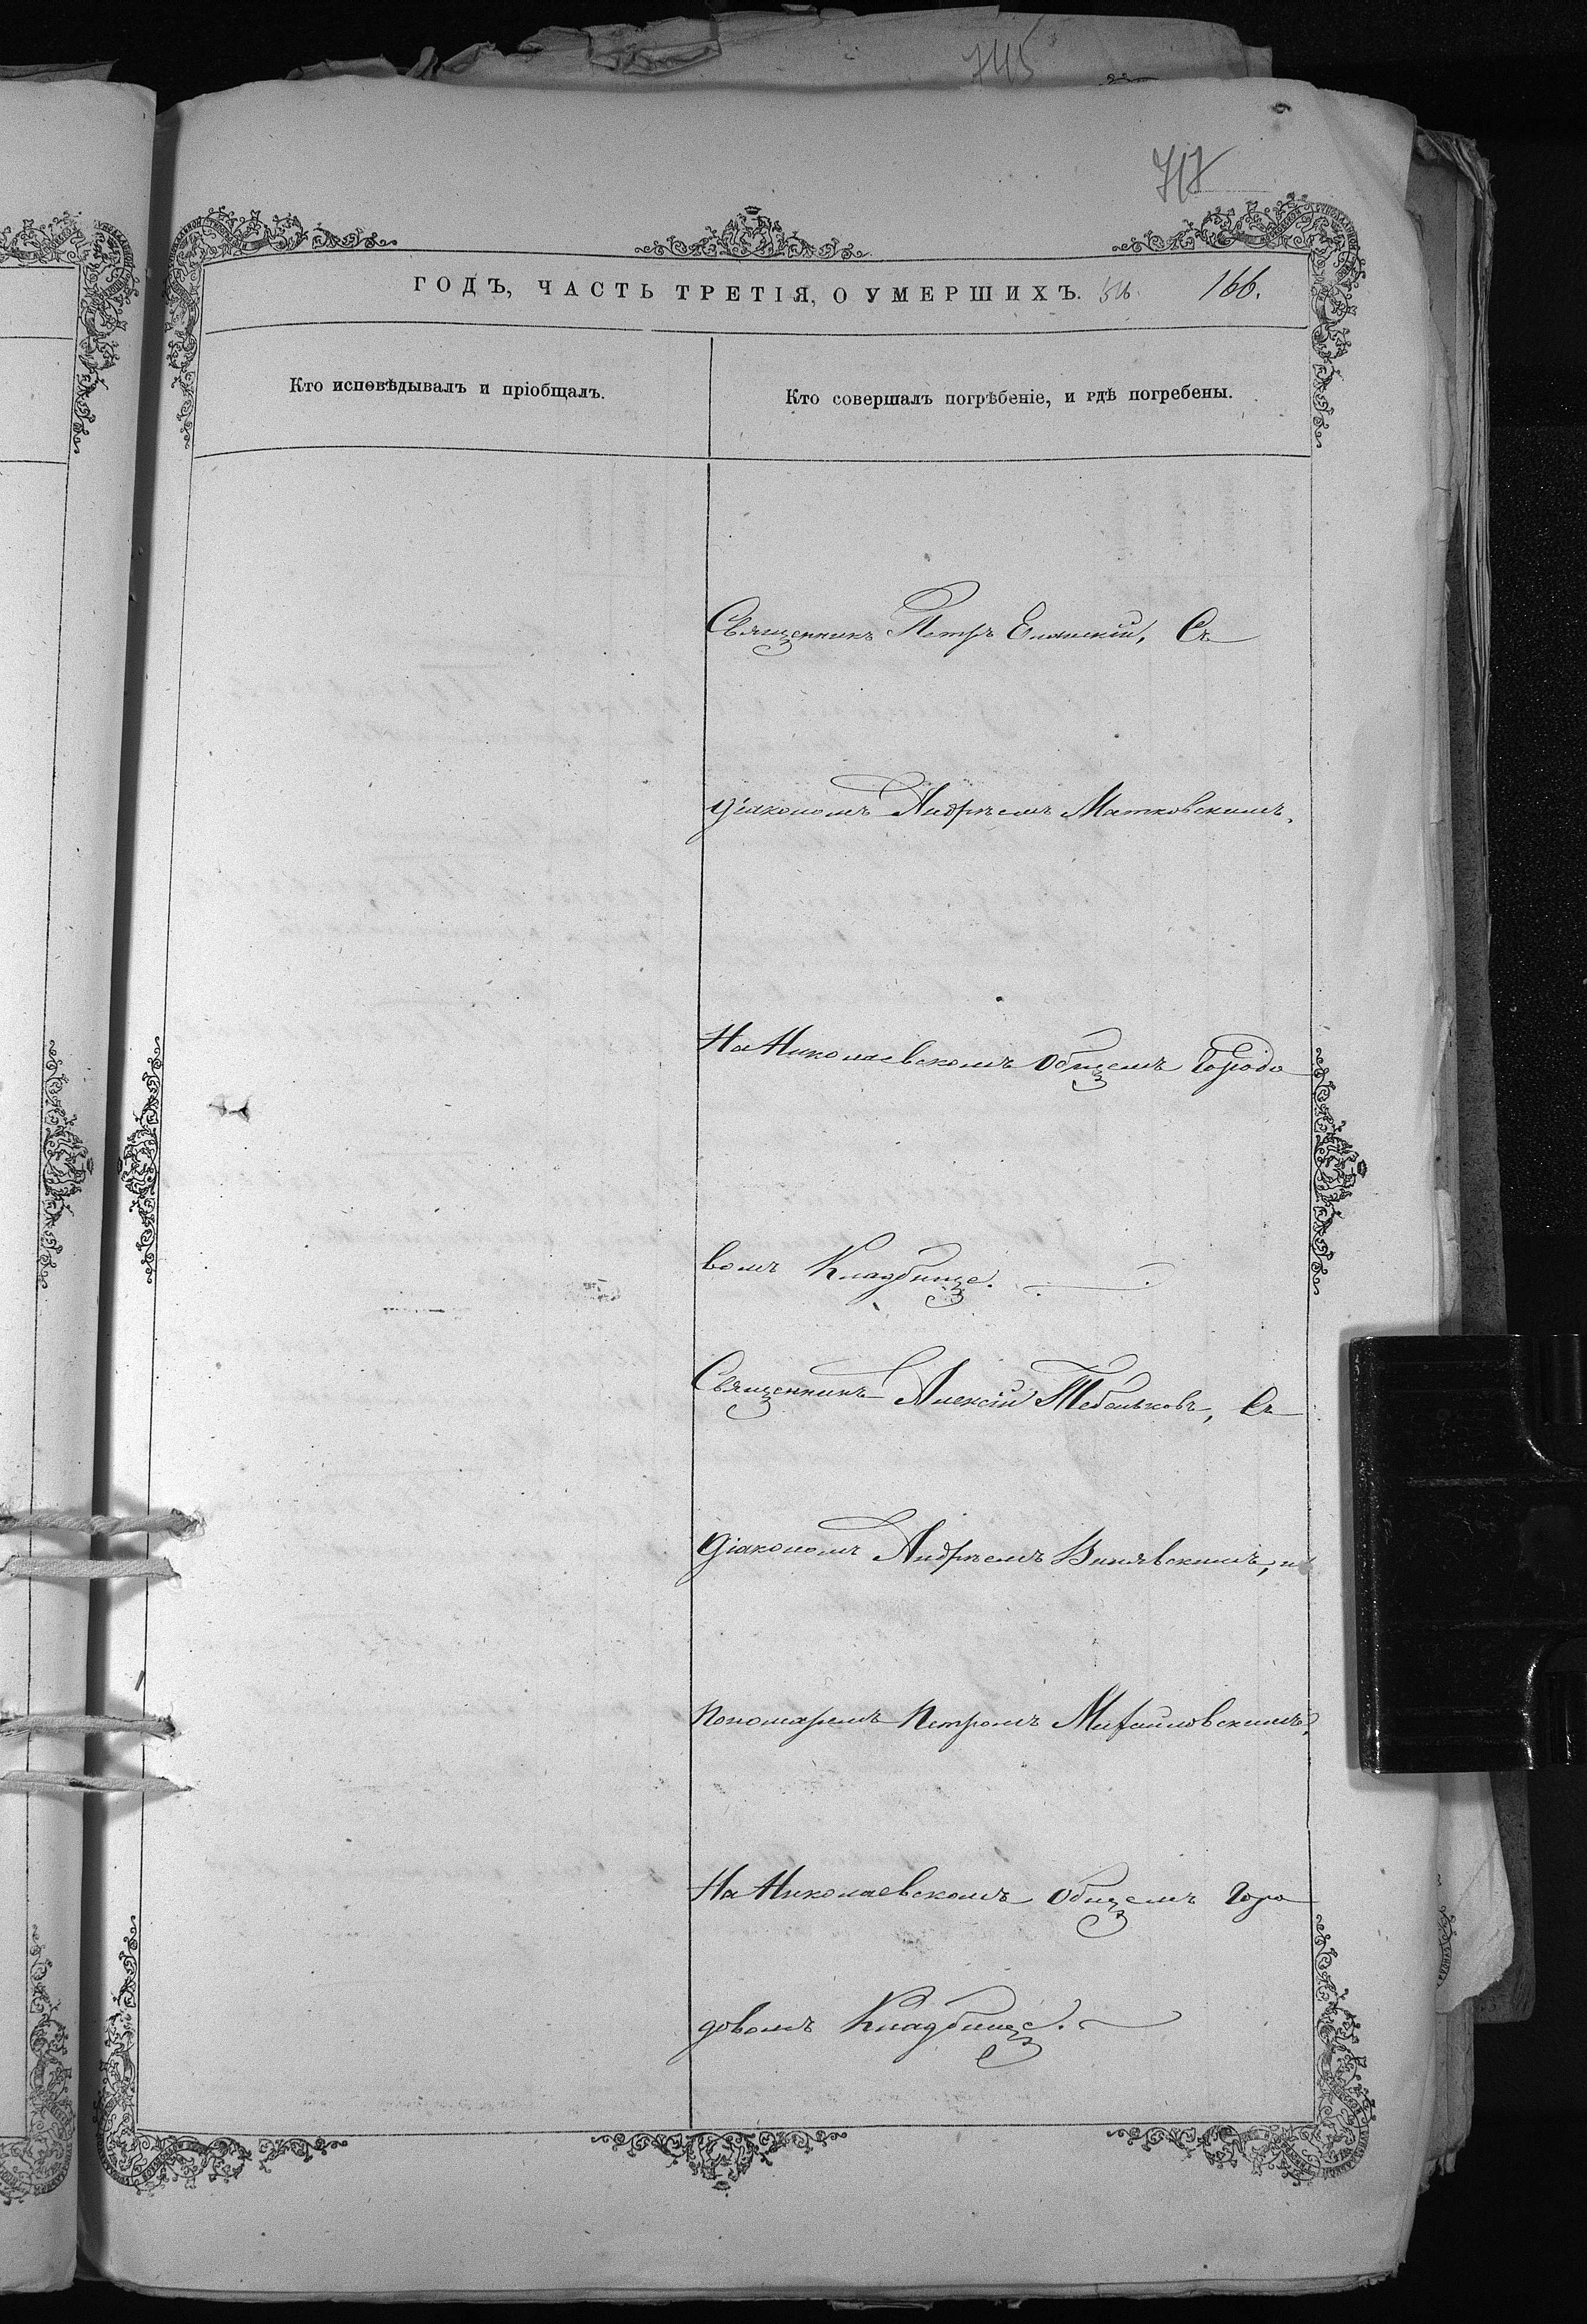 745
717
ГОДЪ, ЧАСТЬ ТРЕТІЯ, О УМЕРШИХЪ. 166.
Кто исповѣдывалъ и пріобщалъ.
Кто совершалъ погрѣбеніе, и гдѣ погребены.
Священникъ Петръ Еланскій, Съ
Діакономъ Андреемъ Матковскимъ.
На Николаевскомъ Общемъ Городо
вомъ Кладбище.
Священникъ Алексій Тебеньковъ, Съ
Діакономъ Андреемъ Винявскимъ, и
Пономаремъ Петромъ Михайловскимъ,
На Николаевскомъ Общемъ Горо
довомъ Кладбище.